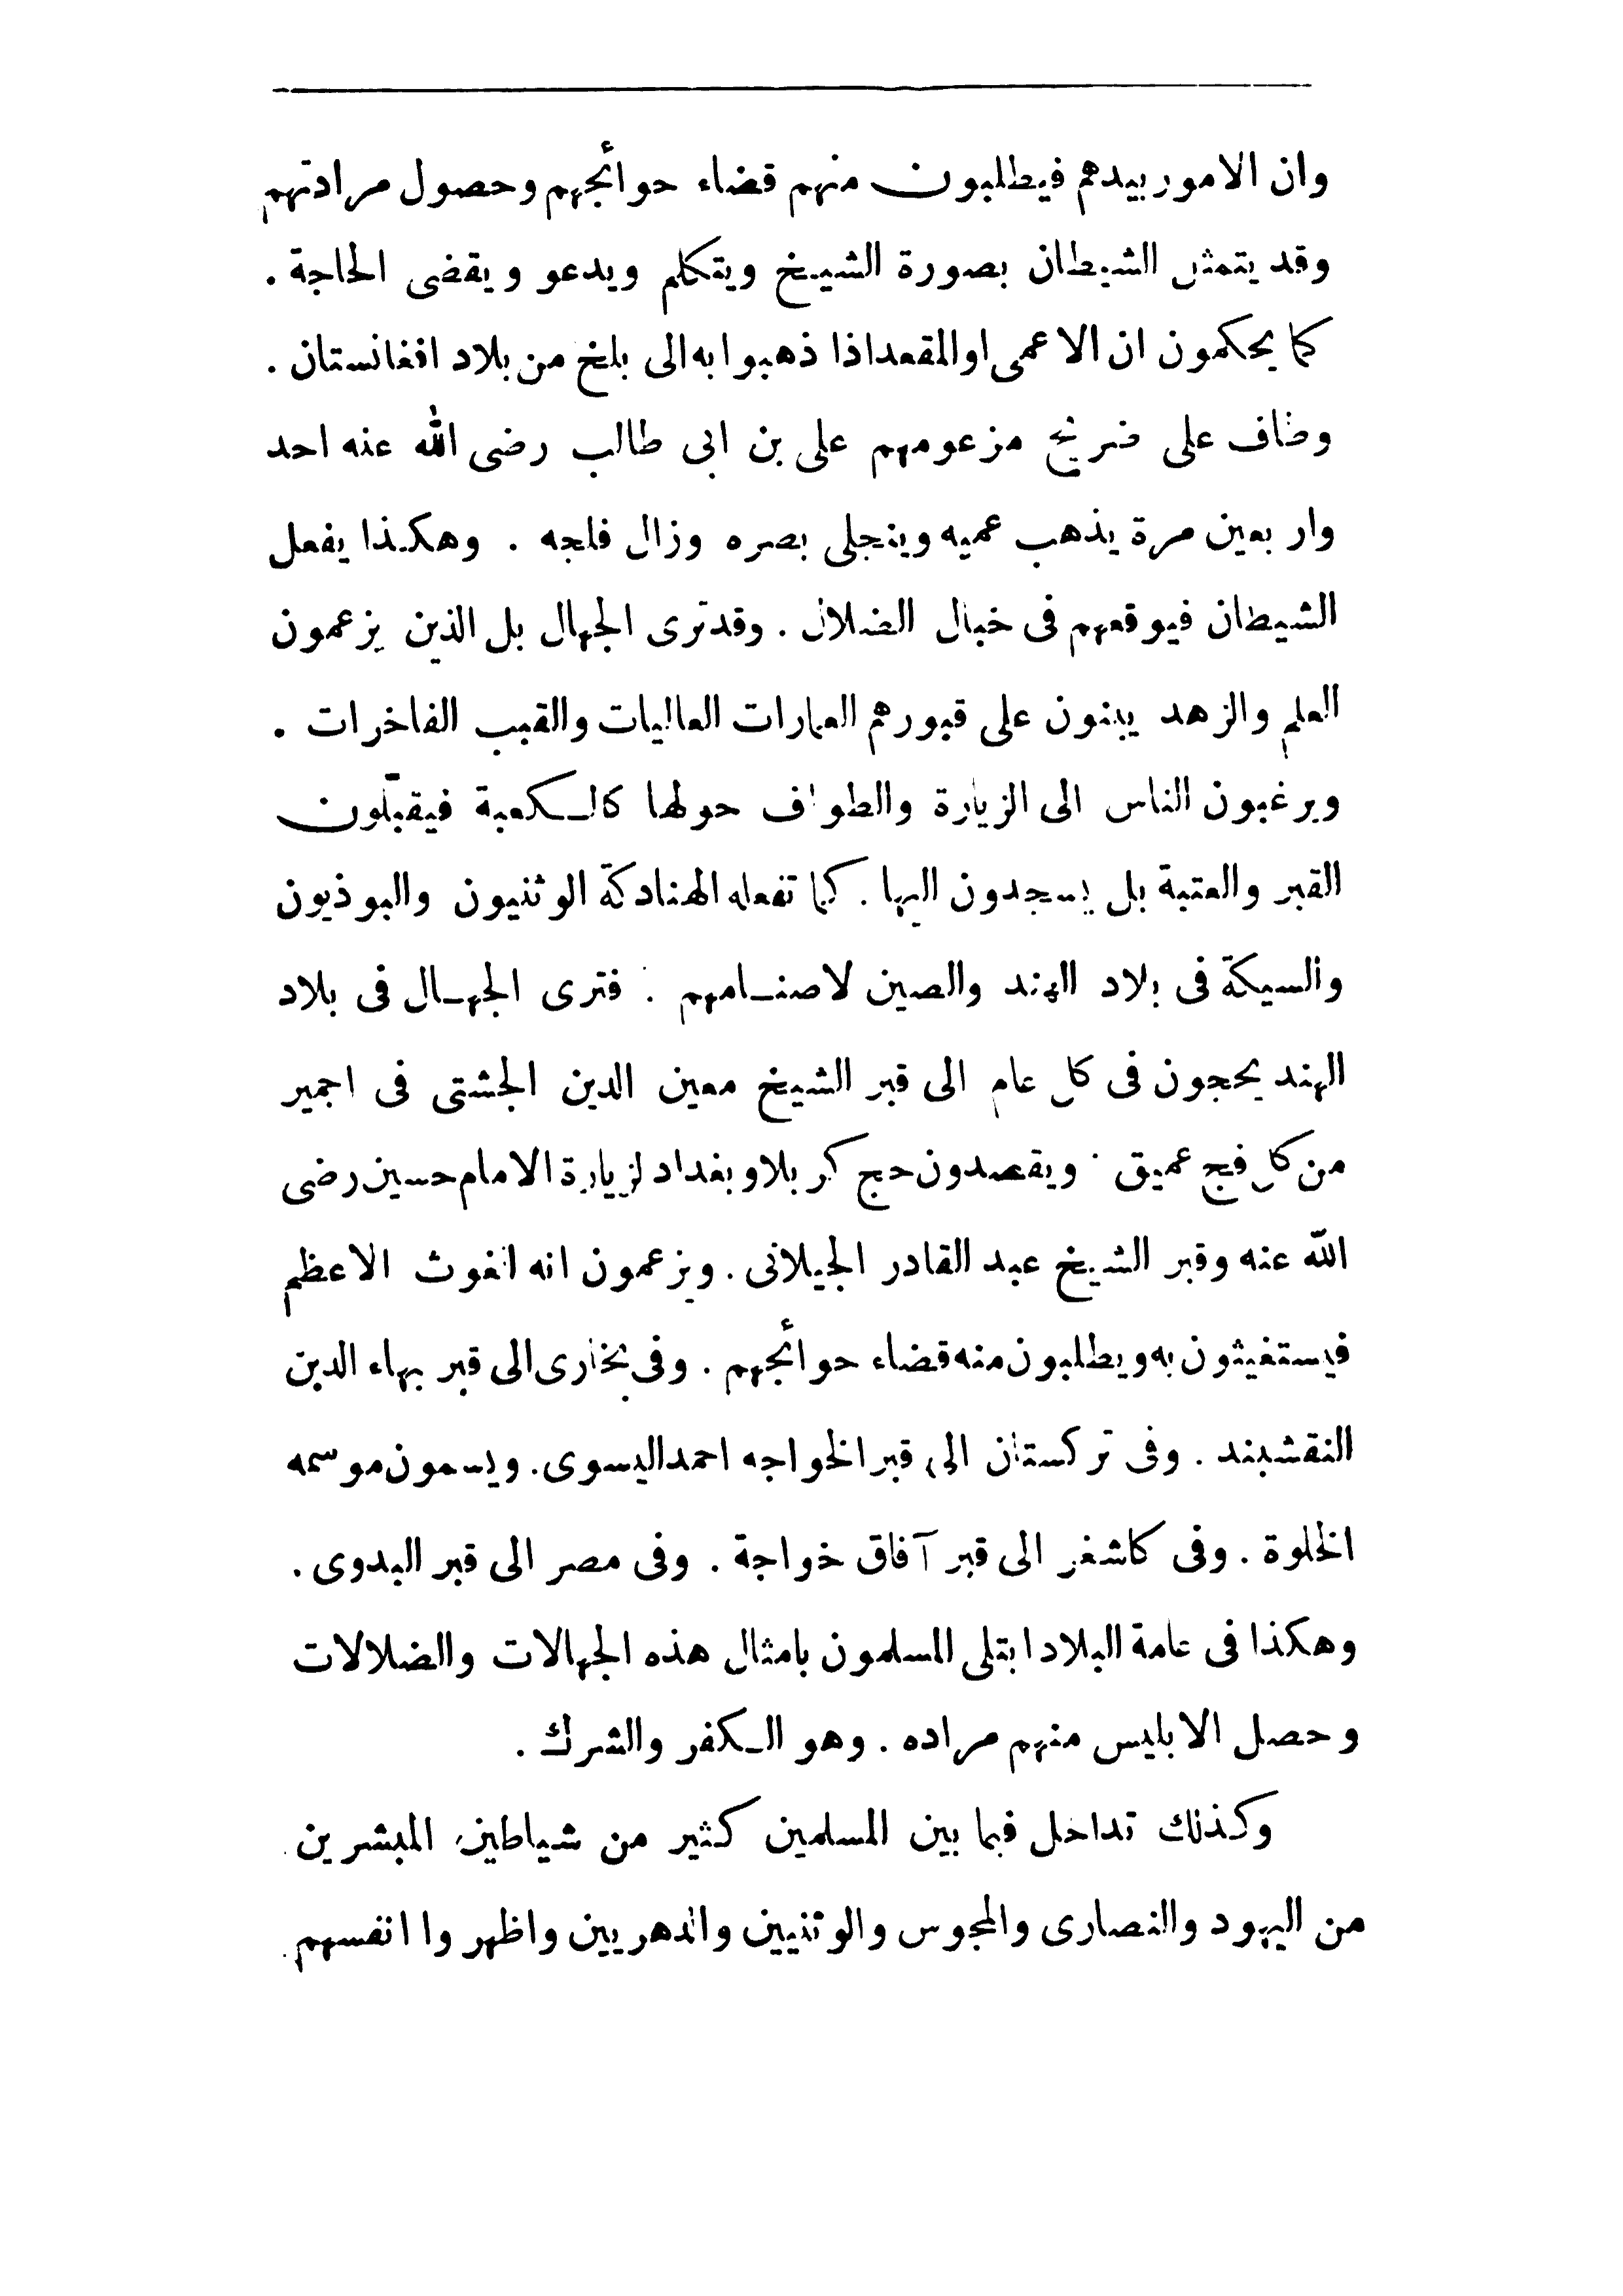 وان الامور بيدهم فيطلبون منهم قضاء حوائجهم وحصول مرادتهم
وقد يتمثل الشيطان بصورة الشيخ ويتكلم ويدعو ويقضى الحاجة .
كما يحكمون ان الاعمى او المقعد اذا ذهبوا به الى بلخ من بلاد افغانستان .
وطاف على ضريح مزعومهم على بن ابى طالب رضى الله عنه احد
واربعين مرة يذهب عميه وينجلى بصره وزال فلجه . وهكذا يفعل
الشيطان فيوقعهم فى خبال الضلال . وقد ترى الجهال بل الذين يزعمون
العلم والزهد يبنون على قبورهم العمارات العاليات والقبب الفاخرات .
ويرغبون الناس الى الزيارة والطواف حولها كالكعبة فيقبّلون
القبر والعتبة بل يسجدون اليها . كما تفعله الهنادكة الوثنيون والبوذيون
والسيكة فى بلاد الهند والصين لاصنامهم . فترى الجهال فى بلاد
الهند يحجون فى كل عام الى قبر الشيخ معين الدين الجشتى فى اجمير
من كل فج عميق . ويقصدون حج كربلا وبغداد لزيارة الامام حسين رضى
الله عنه وقبر الشيخ عبد القادر الجيلانى . ويزعمون انه الغوث الاعظم
فيستغيثون به ويطلبون منه قضاء حوائجهم . وفى بخارى الى قبر بهاء الدين
النقشبند . وفى تركستان الى قبر الخواجه احمد اليسوى . ويسمون موسمه
الخلوة . وفى كاشغر الى قبر آفاق خواجة . وفى مصر الى قبر البدوى .
وهكذا فى عامة البلاد ابتلى المسلمون بامثال هذه الجهالات والضلالات
وحصل الابليس منهم مراده . وهو الكفر والشرك .
وكذلك تداخل فيما بين المسلمين كثير من شياطين المبشرين
من اليهود والنصارى والمجوس والوثنيين والدهريين واظهروا انفسهم